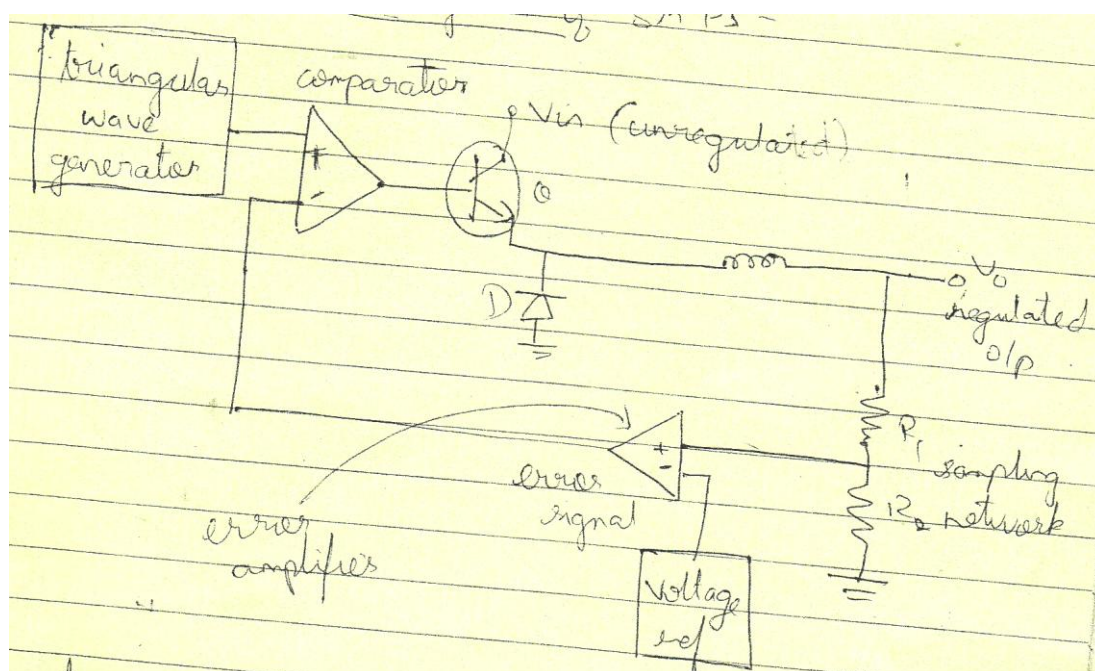 of SMPS -
triangular
wave
generator
comparator
+
-
Vin (unregulated)
Q
D
Vo
regulated
o/p
R1
sampling
R2 network
+
-
error
signal
error
amplifier
voltage
ref